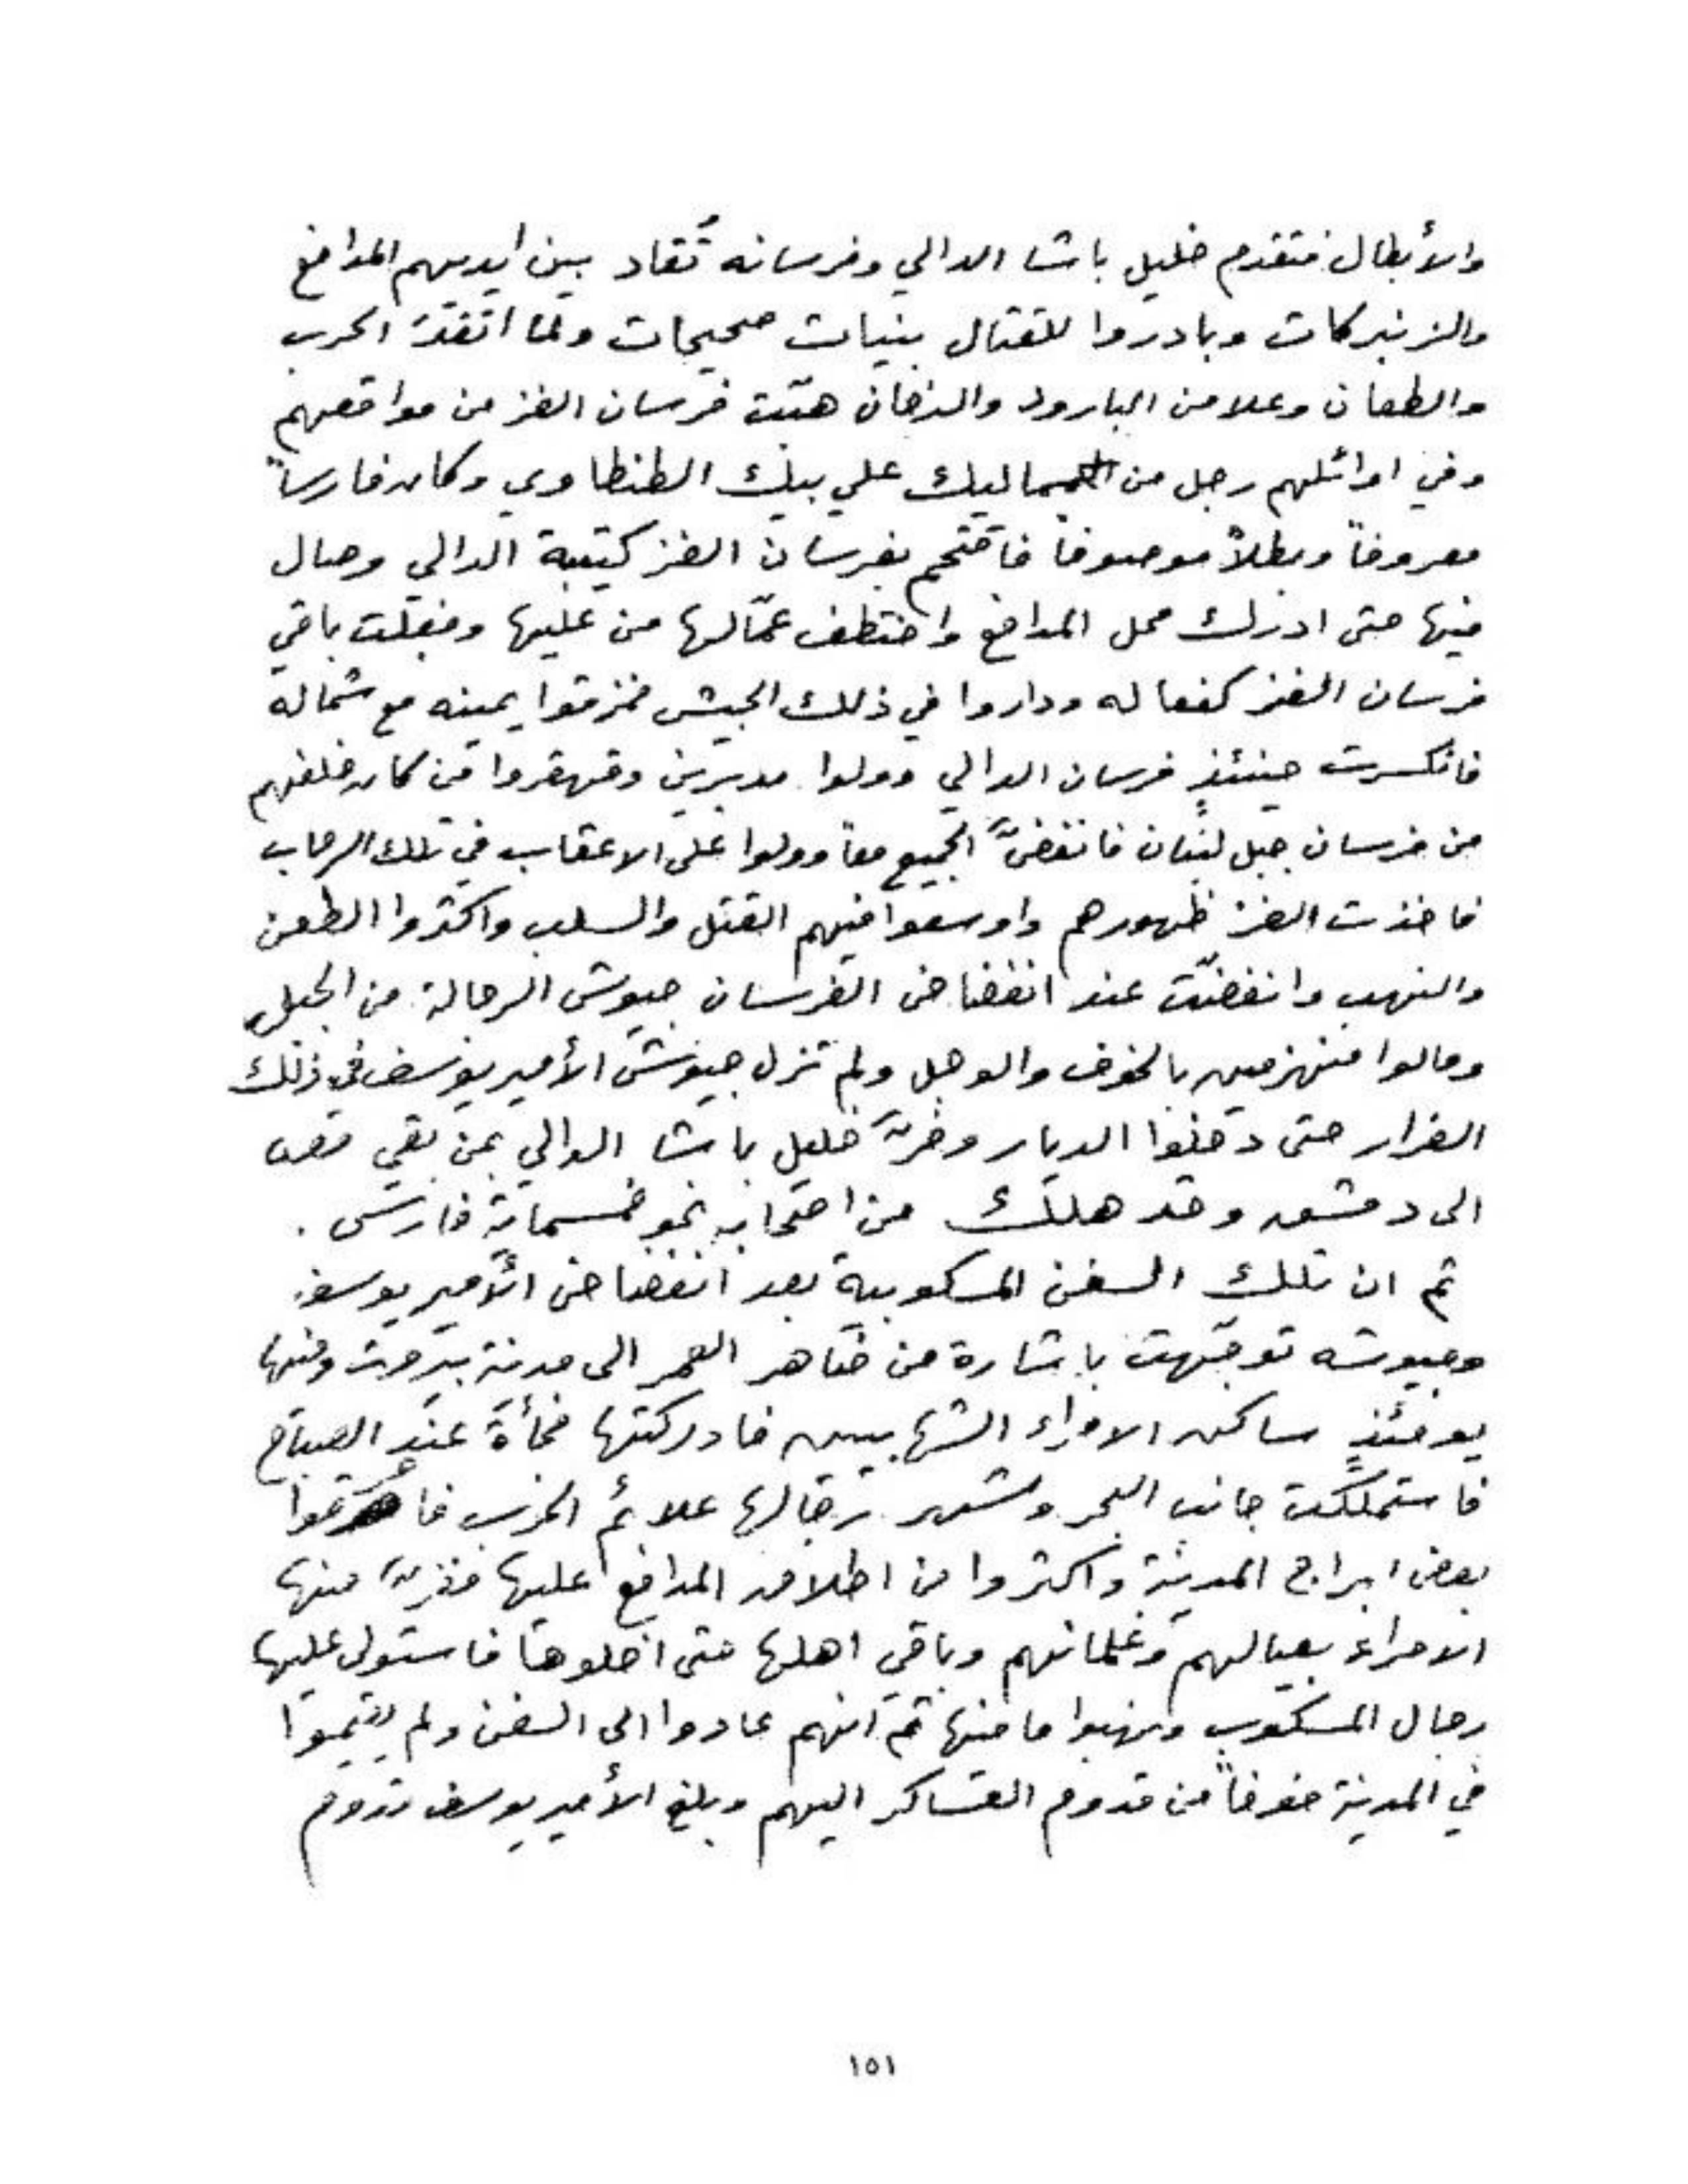 والأبطال فتقدم خليل باشا الدالي وفرسانه تُقاد بين ايديهم المدافع
والزنبركات وبادروا للقتال بنيات صحيحات ولما اتقدَ الحرب
والطعان وعلا من البارود والدخان هبّت فرسان الغز من مواقعهم
وفي اوائلهم رجل من المماليك علي بيك الطنطاوي وكان فارساً
معروفاً وبطلاً موصوفاً فاقتحم بفرسان الغز كتيبة الدالي وصال
فيها حتى ادرك محل المدافع واختطف عمّالها من عليها وفعلت باقي
فرسان الغز كفعاله وداروا في ذلك الجيش فمزقوا يمينه مع شماله
فانكسرت حينئذٍ فرسان الدالي وولوا مدبرين وقهقروا من كان خلفهم
من فرسان جبل لبنان فانفضَّ الجميع معاً وولوا على الاعقاب في تلك الرحاب
فاخذت الغز ظهورهم واوسعوا فيهم القتل والسلب واكثروا الطعن
والنهب وانفضّت عند انفضاض الفرسان جيوش الرجالة من الجبل
ومالوا منهزمين بالخوف والوجل ولم تزل جيوش الأمير يوسف في ذلك
الفرار حتى دخلوا الديار وفرَّ خليل باشا الدالي بمن بقي معه
الى دمشق وقد هلك من اصحابه نحو خمسماية فارس .
ثم ان تلك السفن المسكوبية بعد انفضاض الأمير يوسف
وجيوشه توجّهت باشارة من ضاهر العمر الى مدينة بيروت وفيها
يومئذٍ ساكن الامراء الشهابيين فادركتها فجأةً عند الصباح
فاستملكت جانب البحر وشهر رجالها علائم الحرب فاحرقوا
بعض ابراج المدينة واكثروا من اطلاق المدافع عليها ففرَّ منها
الامراء بعيالهم وغلمانهم وباقي اهلها حتى اخلوها فاستولى عليها
رجال المسكوب ونهبوا ما فيها ثم انهم عادوا الى السفن ولم يقيموا
في المدينة خوفاً من قدوم العساكر اليهم وبلغ الأمير يوسف قدوم
١٥١